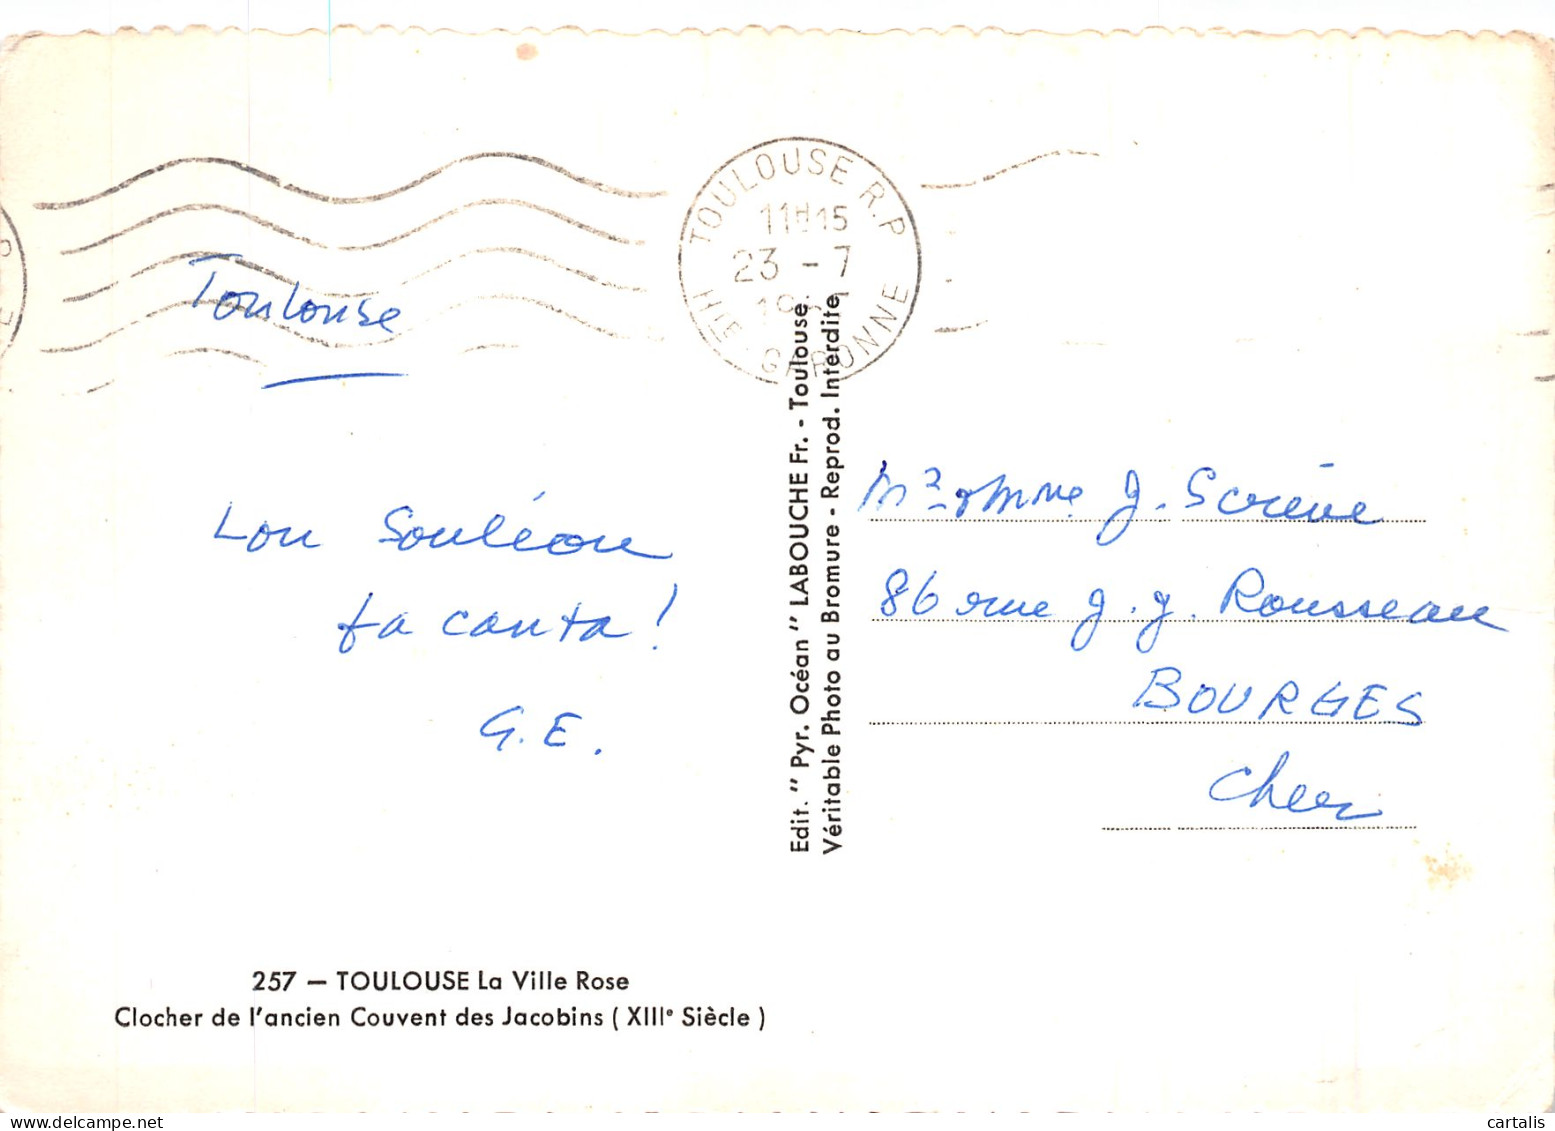 TOULOUSE R.P
11H15
23 - 7
HTE GARONNE
Toulouse
Lou Souléou
fa canta !
G.E.
257 — TOULOUSE La Ville Rose
Clocher de l'ancien Couvent des Jacobins ( XIIIe Siècle )
Edit. " Pyr. Océan " LABOUCHE Fr. - Toulouse.
Véritable Photo au Bromure - Reprod. Interdite
Mr & Mme J. Scrève
86 rue J. J. Rousseau
BOURGES
Cher
cartalis